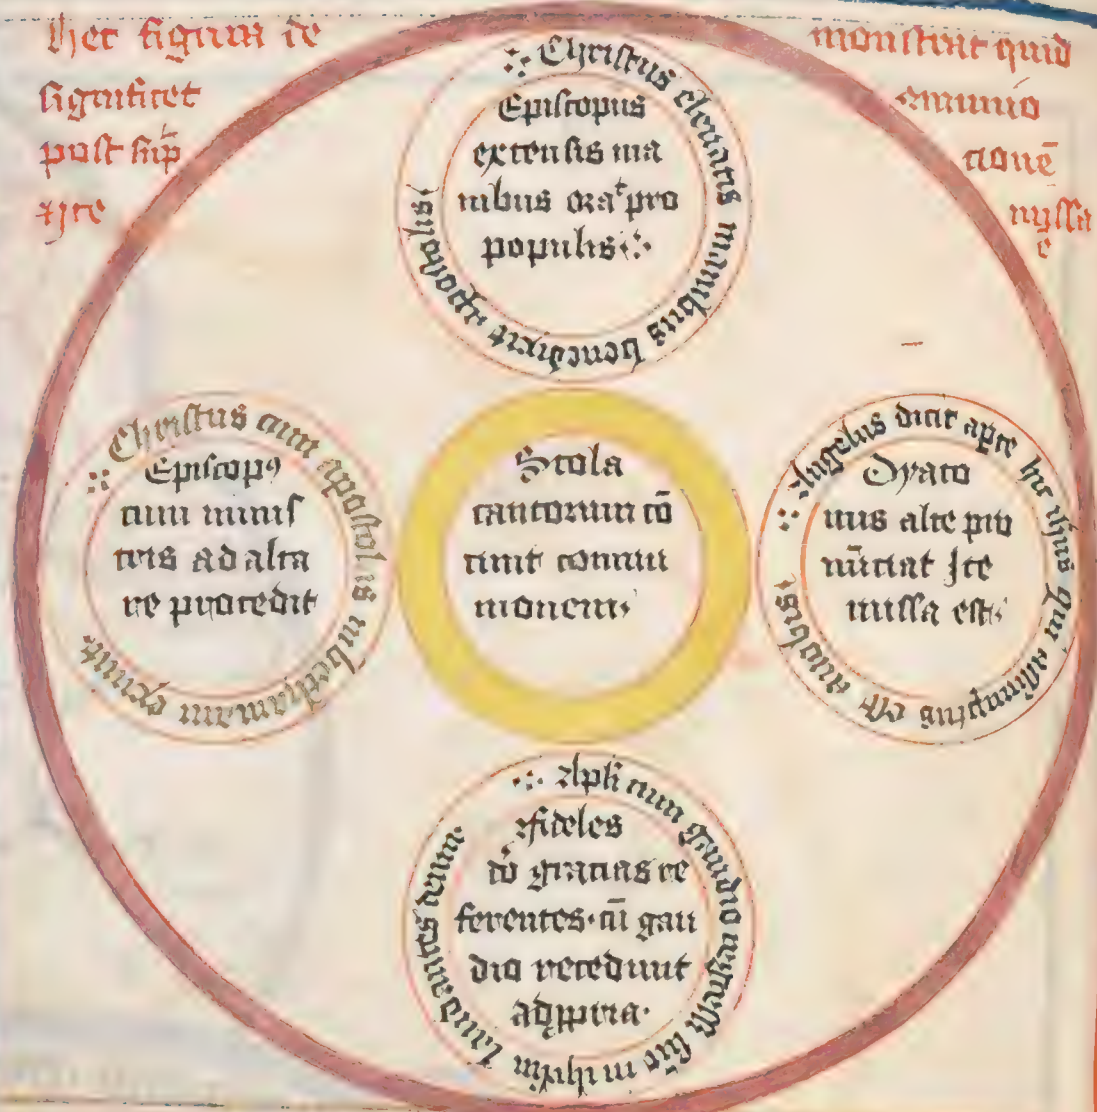 hec figura de
significet
post sup̄
Ite
monstrat quid
comunio
cionē
missa
ē
Christus eleuatis manibus benedixit apostolis
Episcopus
extensis ma
nibus orat pro
populis
Christus cum apostolis in bethaniam exiuit
Episcopꝰ
cum minis
tris ad alta
re procedit
Scola
cantorum cō
cinit commu
nionem
Angelus dicit hic ihūs qui assumptus est auobis
Dyaco
nus alte pro
nūciat Ite
missa est
Apłi cum gaudio in ihrlm laudantes deum
fideles
dō gracias re
ferentes cū gau
dio recedunt
adppria